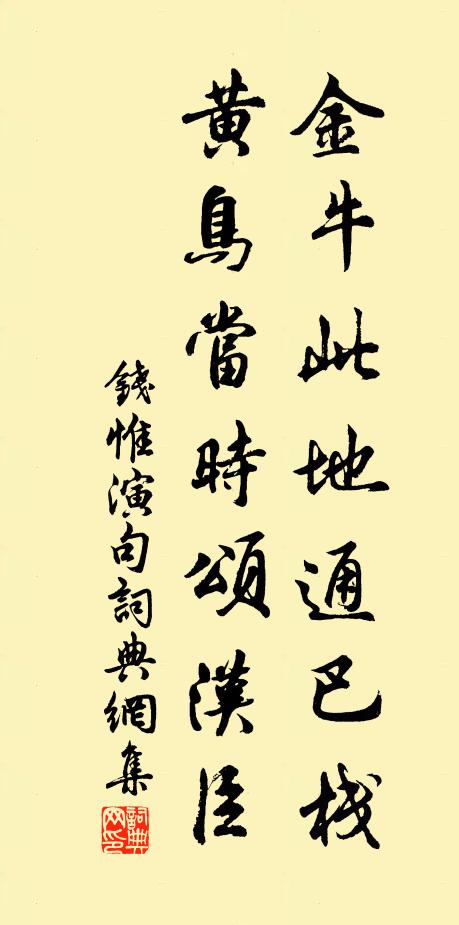 金牛此地通巴棧
黃鳥當時頌漢臣
錢惟演句詞典網集
詞典網印